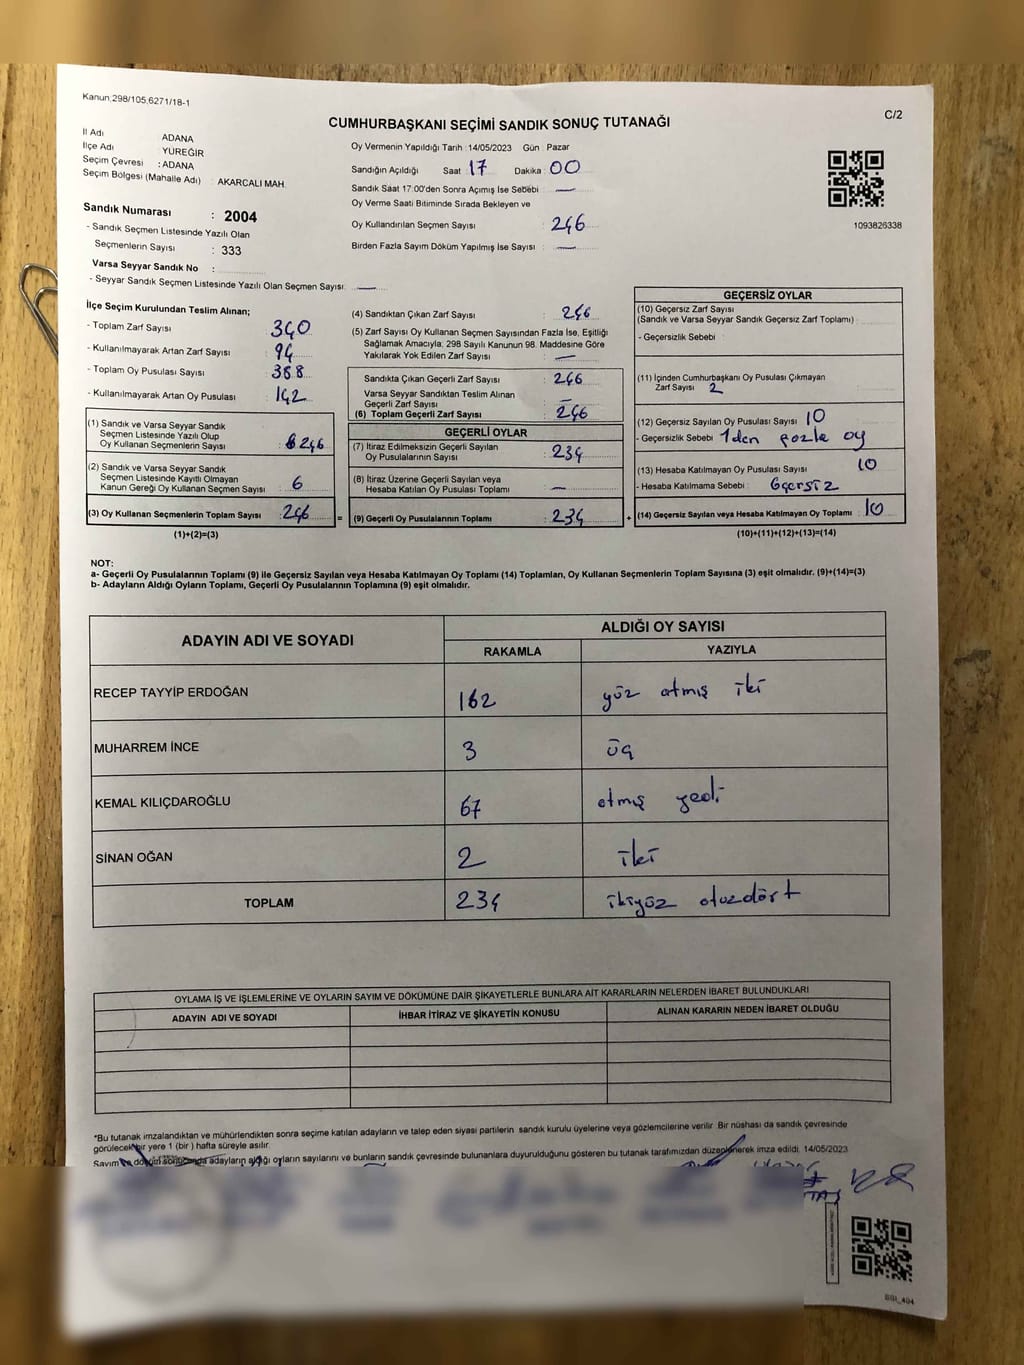 Kanun;298/105,6271/18-1
C/2
CUMHURBAŞKANI SEÇİMİ SANDIK SONUÇ TUTANAĞI
İl Adı ADANA
İlçe Adı YUREĞİR
Seçim Çevresi : ADANA
Seçim Bölgesi (Mahalle Adı) : AKARCALI MAH.
Sandık Numarası : 2004
- Sandık Seçmen Listesinde Yazılı Olan
Seçmenlerin Sayısı : 333
Varsa Seyyar Sandık No :
- Seyyar Sandık Seçmen Listesinde Yazılı Olan Seçmen Sayısı: —
Oy Vermenin Yapıldığı Tarih : 14/05/2023 Gün : Pazar
Sandığın Açıldığı Saat 17 Dakika : 00
Sandık Saat 17:00'den Sonra Açımış İse Sebebi : —
Oy Verme Saati Bitiminde Sırada Bekleyen ve
Oy Kullandırılan Seçmen Sayısı : 246
Birden Fazla Sayım Döküm Yapılmış İse Sayısı : —
1093826338
İlçe Seçim Kurulundan Teslim Alınan;
- Toplam Zarf Sayısı : 340
- Kullanılmayarak Artan Zarf Sayısı : 94
- Toplam Oy Pusulası Sayısı : 388
- Kullanılmayarak Artan Oy Pusulası : 142
(1) Sandık ve Varsa Seyyar Sandık
Seçmen Listesinde Yazılı Olup
Oy Kullanan Seçmenlerin Sayısı : 246
(2) Sandık ve Varsa Seyyar Sandık
Seçmen Listesinde Kayıtlı Olmayan
Kanun Gereği Oy Kullanan Seçmen Sayısı : 6
(3) Oy Kullanan Seçmenlerin Toplam Sayısı : 246 =
(1)+(2)=(3)
(4) Sandıktan Çıkan Zarf Sayısı : 246
(5) Zarf Sayısı Oy Kullanan Seçmen Sayısından Fazla İse, Eşitliği
Sağlamak Amacıyla; 298 Sayılı Kanunun 98. Maddesine Göre
Yakılarak Yok Edilen Zarf Sayısı : —
Sandıkta Çıkan Geçerli Zarf Sayısı : 246
Varsa Seyyar Sandıktan Teslim Alınan
Geçerli Zarf Sayısı : —
(6) Toplam Geçerli Zarf Sayısı : 246
GEÇERLİ OYLAR
(7) İtiraz Edilmeksizin Geçerli Sayılan
Oy Pusulalarının Sayısı : 234
(8) İtiraz Üzerine Geçerli Sayılan veya
Hesaba Katılan Oy Pusulası Toplamı : —
(9) Geçerli Oy Pusulalarının Toplamı : 234 +
GEÇERSİZ OYLAR
(10) Geçersiz Zarf Sayısı
(Sandık ve Varsa Seyyar Sandık Geçersiz Zarf Toplamı) :
- Geçersizlik Sebebi :
(11) İçinden Cumhurbaşkanı Oy Pusulası Çıkmayan
Zarf Sayısı 2
(12) Geçersiz Sayılan Oy Pusulası Sayısı 10
- Geçersizlik Sebebi : 1den fazla oy
(13) Hesaba Katılmayan Oy Pusulası Sayısı : 10
- Hesaba Katılmama Sebebi : Geçersiz
(14) Geçersiz Sayılan veya Hesaba Katılmayan Oy Toplamı : 10
(10)+(11)+(12)+(13)=(14)
NOT:
a- Geçerli Oy Pusulalarının Toplamı (9) ile Geçersiz Sayılan veya Hesaba Katılmayan Oy Toplamı (14) Toplamları, Oy Kullanan Seçmenlerin Toplam Sayısına (3) eşit olmalıdır. (9)+(14)=(3)
b- Adayların Aldığı Oyların Toplamı, Geçerli Oy Pusulalarının Toplamına (9) eşit olmalıdır.
ADAYIN ADI VE SOYADI ALDIĞI OY SAYISI
RAKAMLA YAZIYLA
RECEP TAYYİP ERDOĞAN 162 yüz atmış iki
MUHARREM İNCE 3 üç
KEMAL KILIÇDAROĞLU 67 atmış yedi
SİNAN OĞAN 2 iki
TOPLAM 234 ikiyüz otuzdört
OYLAMA İŞ VE İŞLEMLERİNE VE OYLARIN SAYIM VE DÖKÜMÜNE DAİR ŞİKAYETLERLE BUNLARA AİT KARARLARIN NELERDEN İBARET BULUNDUKLARI
ADAYIN ADI VE SOYADI İHBAR İTİRAZ VE ŞİKAYETİN KONUSU ALINAN KARARIN NEDEN İBARET OLDUĞU
*Bu tutanak imzalandıktan ve mühürlendikten sonra seçime katılan adayların ve talep eden siyasi partilerin sandık kurulu üyelerine veya gözlemcilerine verilir. Bir nüshası da sandık çevresinde
görülecek bir yere 1 (bir) hafta süreyle asılır.
Sayım ve döküm sonucunda adayların aldığı oyların sayılarını ve bunların sandık çevresinde bulunanlara duyurulduğunu gösteren bu tutanak tarafımızdan düzenlenerek imza edildi. 14/05/2023